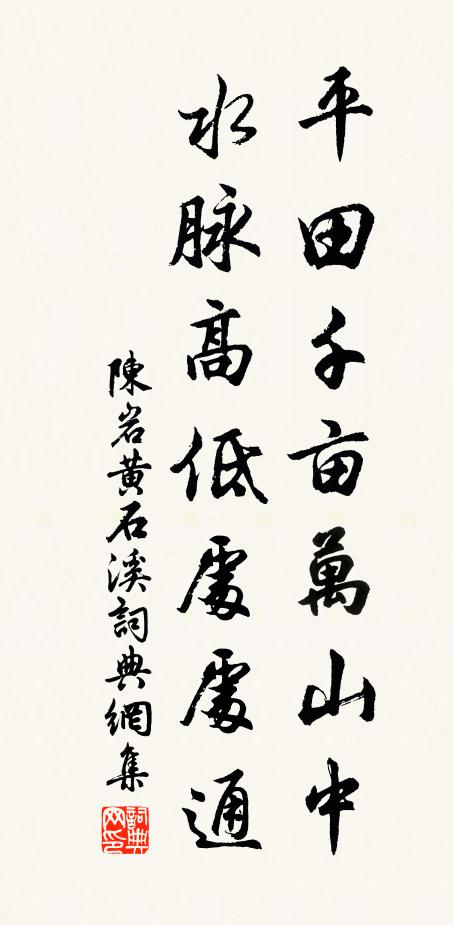 平田千亩萬山中
水脉高低處處通
陳岩黄石溪詞典網集
詞典网印